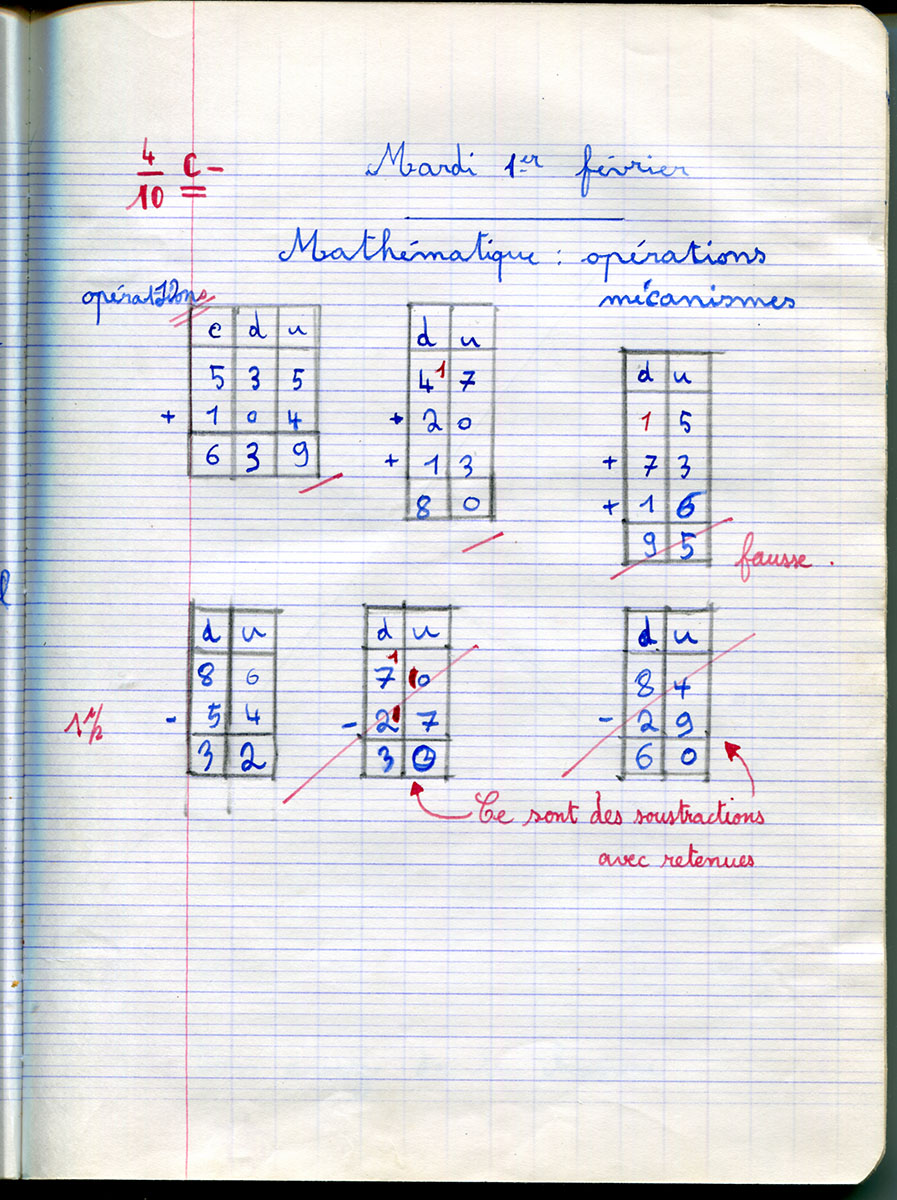 4/10 C-
Mardi 1er février
Mathématique : opérations
mécanismes
c d u
5 3 5
+ 1 0 4
6 3 9
d u
4 1 7
+ 2 0
+ 1 3
8 0
d u
1 5
+ 7 3
+ 1 6
9 5
fausse.
d u
8 6
- 5 4
3 2
d u
1
7 0
- 2 7
3 0
d u
8 4
- 2 9
6 0
Ce sont des soustractions
avec retenues